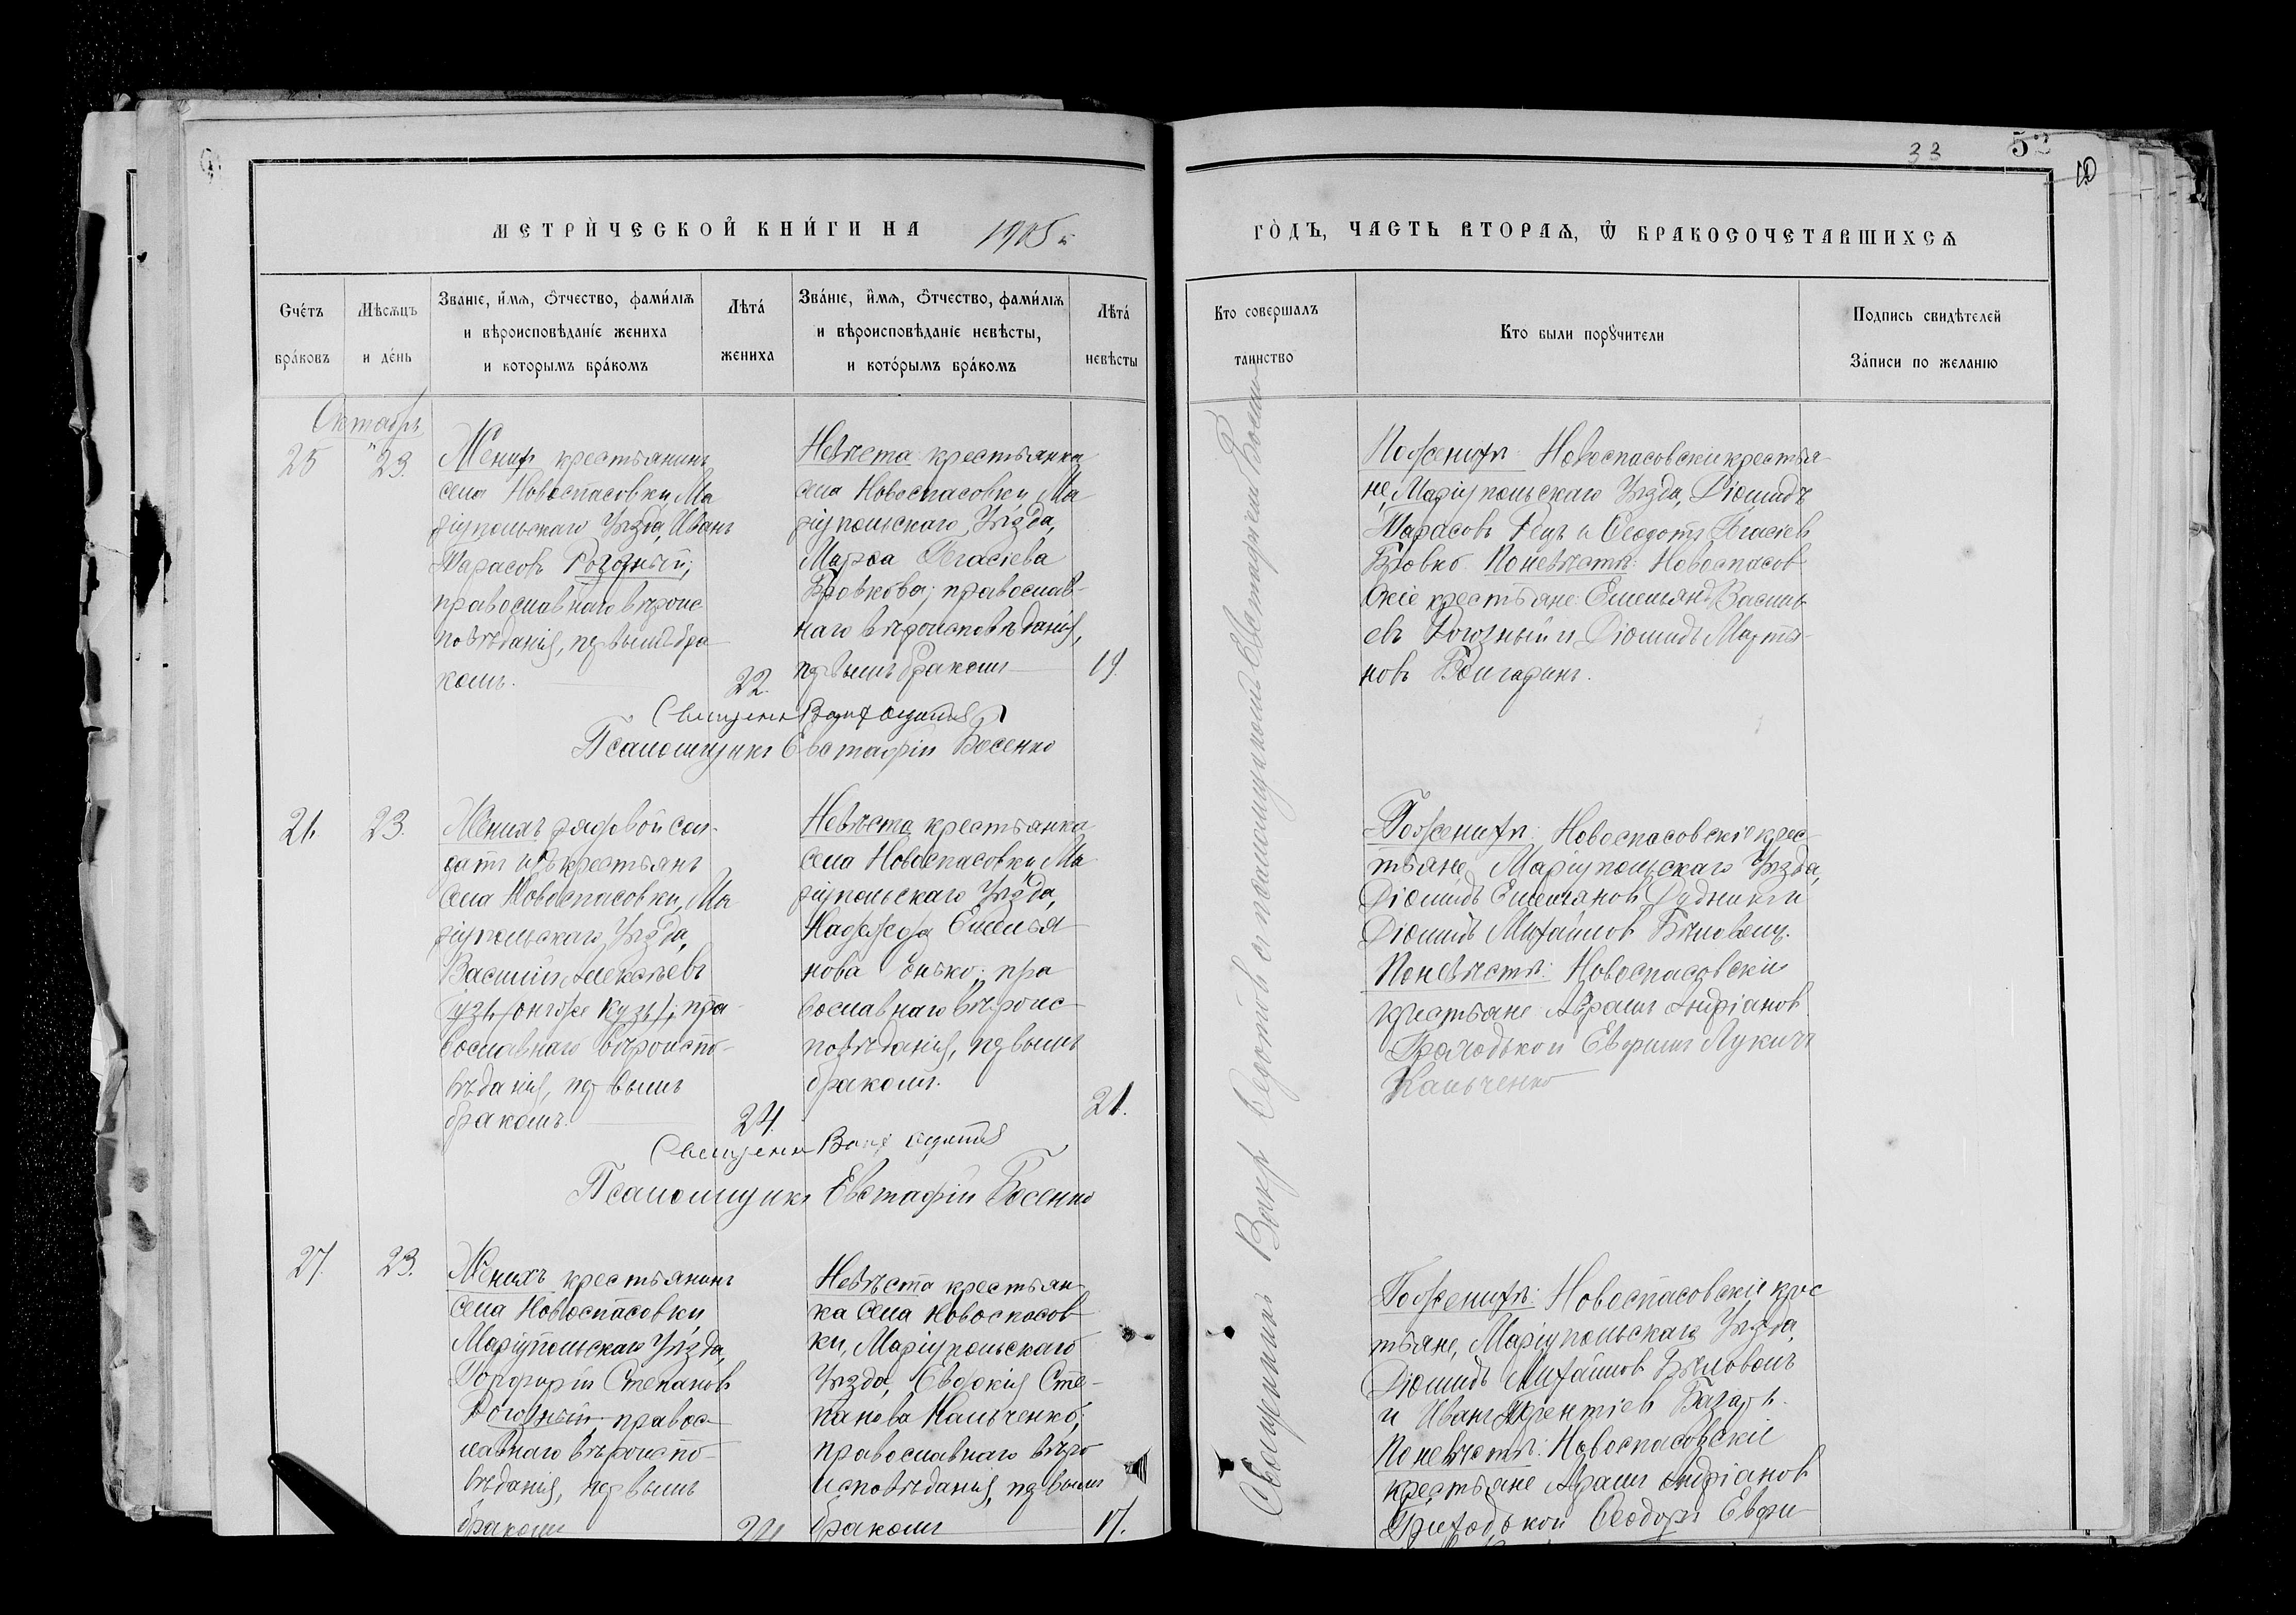 33 53
10
МЕТРИЧЕСКОЙ КНИГИ НА 1905 г.
ГОДЪ, ЧАСТЬ ВТОРАѦ, Ѡ БРАКОСОЧЕТАВШИХСѦ
Счетъ браковъ
Мѣсѧцъ и день
Званіе, имѧ, ѻтчество, фамиліѧ и вѣроисповѣданіе жениха и которымъ бракомъ
Лѣта жениха
Званіе, имѧ, ѻтчество, фамиліѧ и вѣроисповѣданіе невѣсты, и которымъ бракомъ
Лѣта невѣсты
Кто совершалъ таинство
Кто были порꙋчители
Подпись свидѣтелей Записи по желанію
Октябрь
25 23.
Женихъ крестьянинъ
села Новоспасовки, Ма
ріупольскаго Уѣзда, Иванъ
Тарасовъ Рогозный;
православнаго вѣроис
повѣданія, первымъ бра
комъ.
22.
Невѣста крестьянка
села Новоспасовки, Ма
ріупольскаго Уѣзда,
Марѳа
Бровкова; православ-
наго вѣроисповѣданія,
первымъ бракомъ
19.
По женихѣ: Новоспасовскіе крестья-
не, Маріупольскаго Уѣзда, Діомидъ
Тарасовъ и Ѳеодотъ
Бровко. По невѣстѣ: Новоспасов
скіе крестьяне: Емельянъ Василь
евъ Рогозный и Діомидъ Марты-
новъ
Священн
Псаломщикъ Евстафій Босенко
26. 23.
Женихъ рядовой сол-
датъ изъ крестьянъ
села Новоспасовки, Ма
ріупольскаго Уѣзда,
Василій Алексѣевъ
Гузь (онъ же Кузь); пра-
вославнаго вѣроиспо-
вѣданія, первымъ
бракомъ.
24.
Невѣста крестьянка
села Новоспасовки, Ма
ріупольскаго Уѣзда,
Надежда Емелья
нова пра
вославнаго вѣроис
повѣданія, первымъ
бракомъ.
21.
По женихѣ: Новоспасовскіе крес-
тьяне, Маріупольскаго Уѣзда,
Діомидъ Емельяновъ Дудникъ и
Діомидъ Михайловъ Бѣловецъ.
По невѣстѣ: Новоспасовскіе
крестьяне Авраамъ Андріановъ
Приходько и Ефремъ Лукичъ
Кальченко
Священн
Псаломщикъ Евстафій Босенко
27. 23.
Женихъ крестьянинъ
села Новоспасовки,
Маріупольскаго Уѣзда,
Порфирій Степановъ
Рогозный; правос-
лавнаго вѣроиспо-
вѣданія, первымъ
бракомъ
24
Невѣста крестьян-
ка села Новоспасов
ки, Маріупольскаго
Уѣзда, Евдокія Сте-
панова Кальченко;
православнаго вѣро
исповѣданія, первымъ
бракомъ
17.
По женихѣ: Новоспасовскіе крес
тьяне, Маріупольскаго Уѣзда,
Діомидъ Михайловъ Бѣловецъ
и Иванъ
По невѣстѣ: Новоспасовскіе
крестьяне Авраамъ Андріановъ
Приходько и Ѳеодоръ Ефре-
Священникъ съ псаломщикомъ Евстафіемъ Босенко